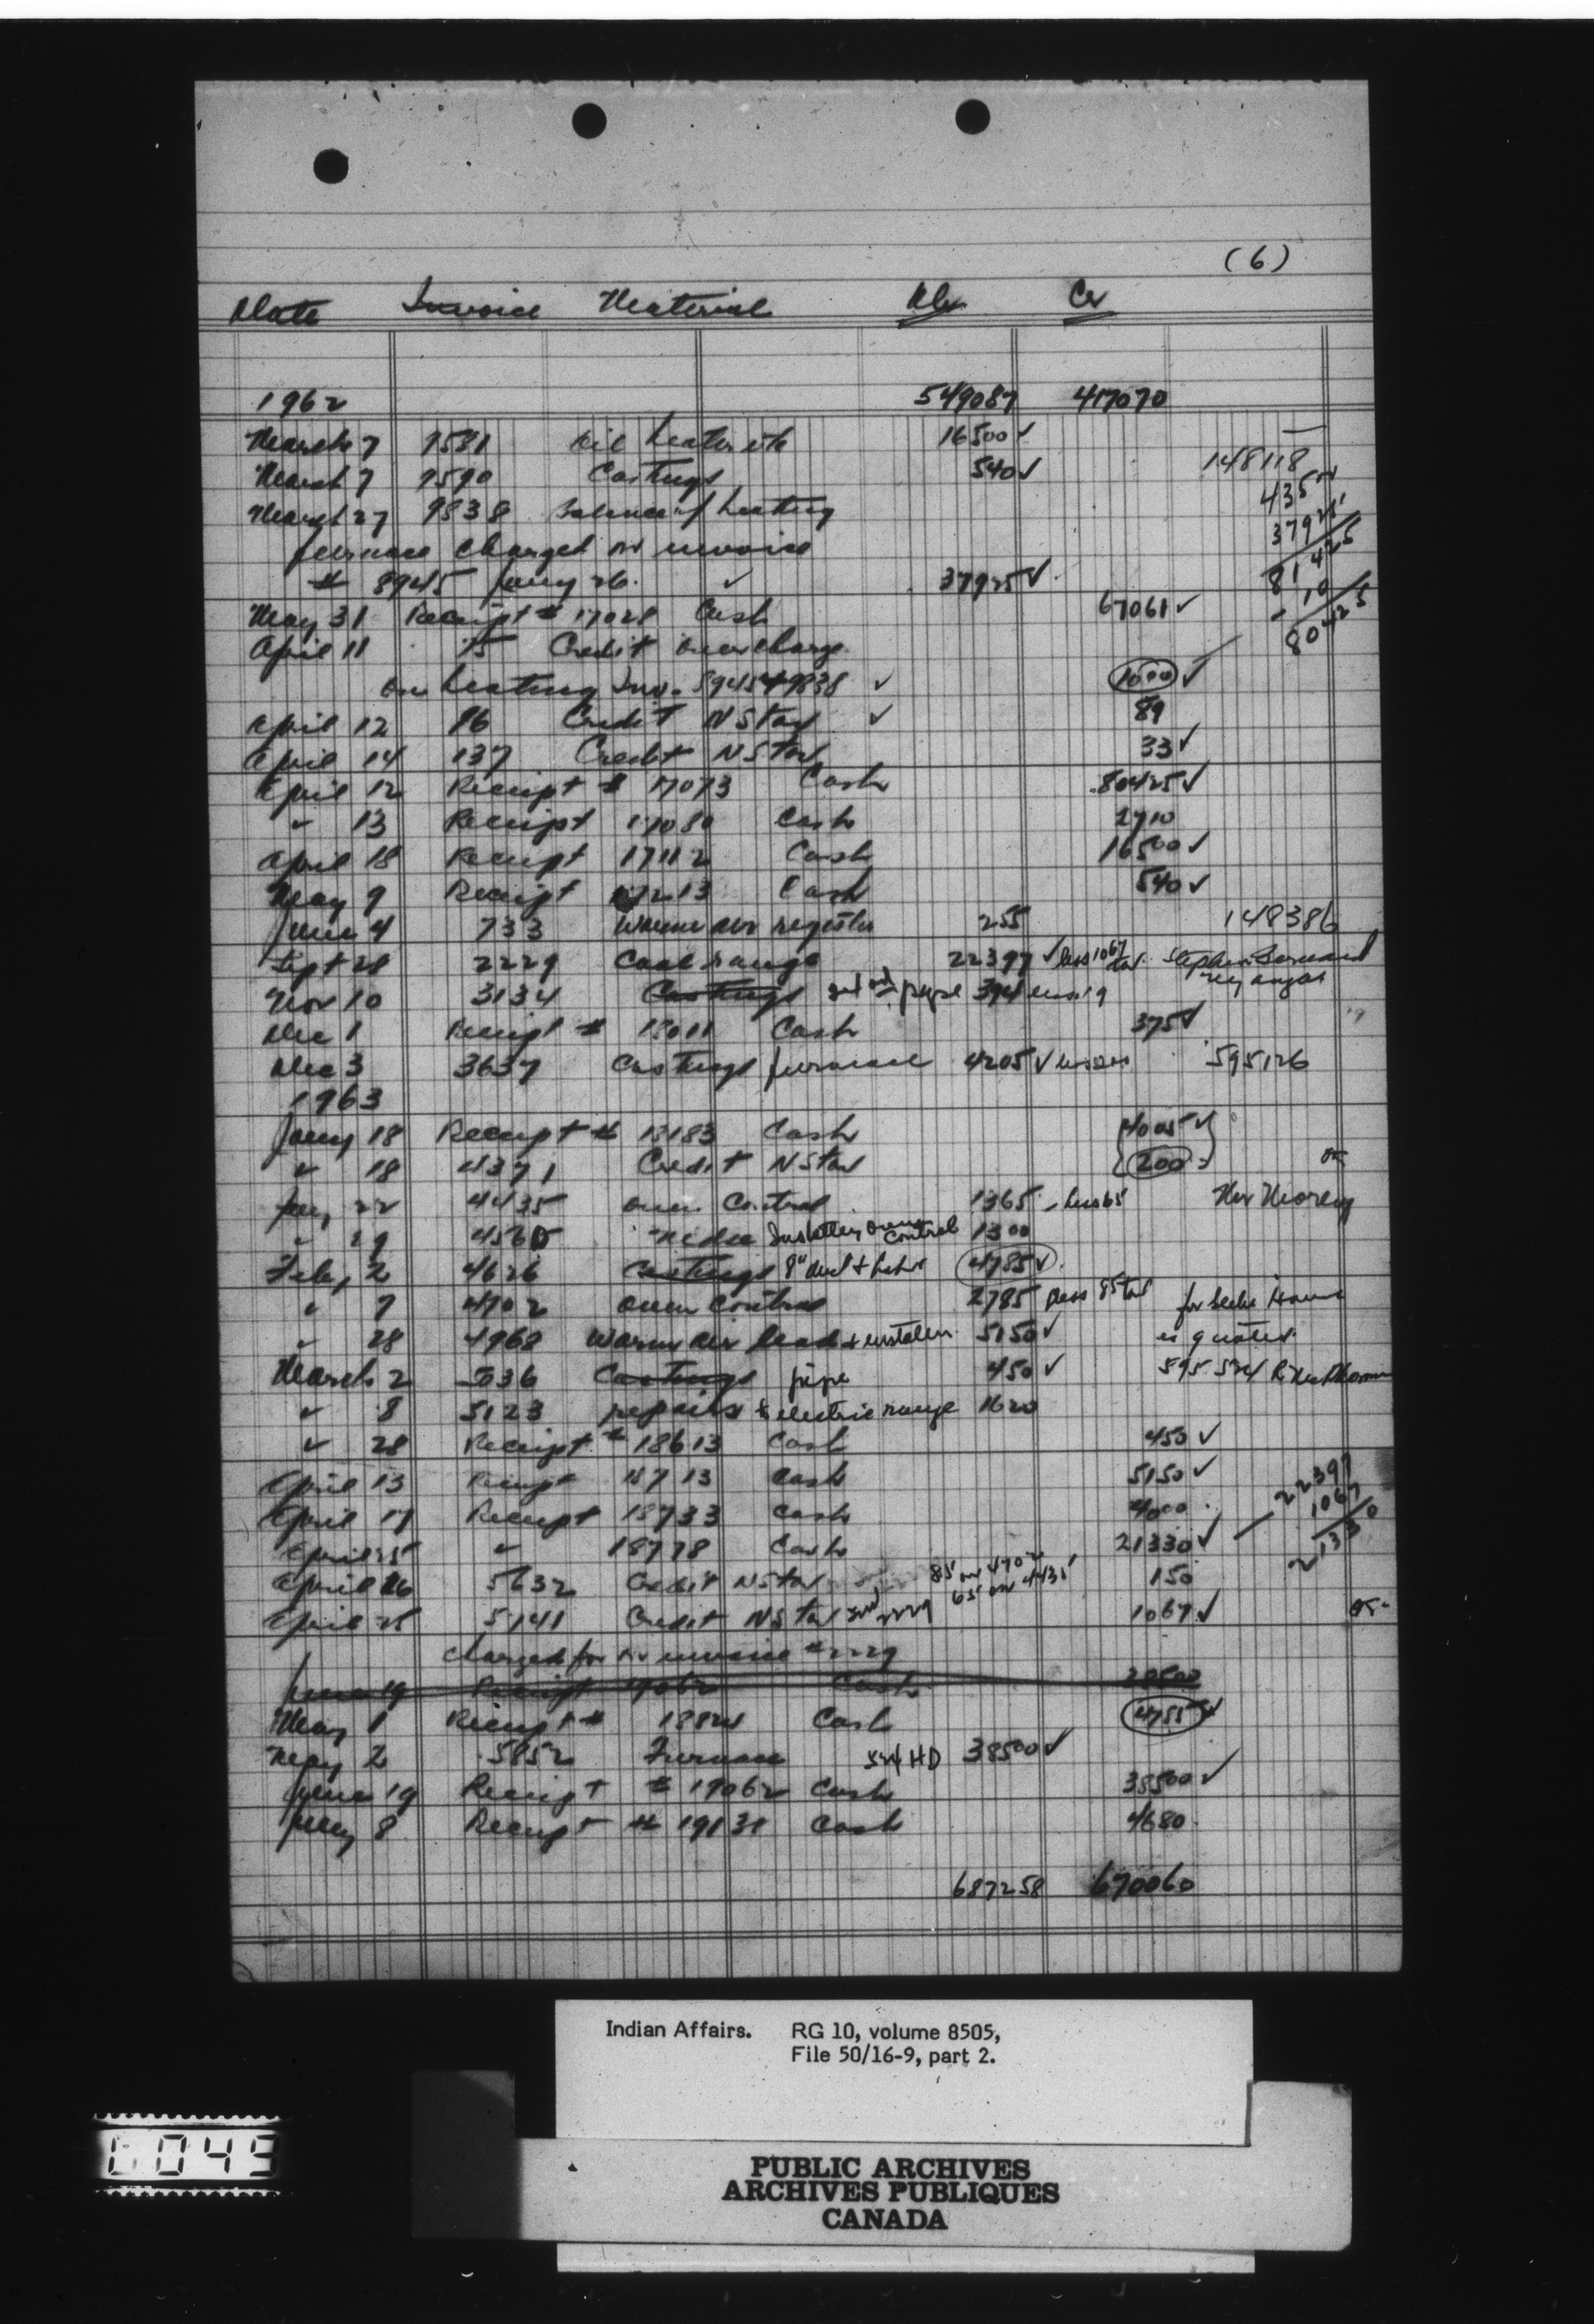 (6)
Date Invoice Material Dr Cr
1962 549087 417070
March 7 9581 oil heater etc 16500 ✓
March 7 9590 Castings 540 ✓ 148118
March 27 9838 Balance of heating 43500
furnace charged on invoice 37925
# 8945 Jany 26. ✓ 37925 ✓ 81425
May 31 Receipt # 17028 Cash 67061 ✓ - 10
April 11 75 Credit overcharge 80425
on heating Inv. 8945 + 9838 ✓ 1000 ✓
April 12 86 Credit N S tax ✓ 89
April 14 137 Credit N S tax 33 ✓
April 12 Receipt # 17073 Cash 80425 ✓
" 13 Receipt 17080 Cash 2710
April 18 Receipt 17112 Cash 16500 ✓
May 9 Receipt 17213 Cash 540 ✓
June 4 733 Warm air register 255 148386
Sept 28 2229 Coal range 22397 ✓ less 1067 tax Stephen Bernard
Nov 10 3134 Castings pipe 394 less 19
Dec 1 Receipt # 18011 Cash 375 ✓
Dec 3 3637 Castings furnace 4205 ✓ 595126
1963
Jany 18 Receipt # 18183 Cash 4005 ✓
" 18 4371 Credit N S tax 200
Jany 22 4435 oven Control 1365 - less 65
" 29 4560 Installing oven control 1300
Feby 2 4626 Castings 8" 4785 ✓
" 7 4702 oven Control 2785 less 85 tax
" 28 4968 Warm air head + 5150 ✓ as quoted
March 2 5036 Castings pipe 450 ✓ 595 524
" 8 5123 repairs to electric range 1620
" 28 Receipt # 18613 Cash 450 ✓
April 13 Receipt 18713 Cash 5150 ✓
April 17 Receipt 18733 Cash 4000 22397
April 25 " 18778 Cash 21330 ✓ 1067
April 26 5632 Credit N S tax 85 on 4702 65 on 4435 150 21330
April 25 5141 Credit N S tax Inv 2229 1067 ✓
charged for on invoice # 2229
June 19 Receipt 19062 Cash 38500
May 1 Receipt # 18824 Cash 4785 ✓
May 2 5852 Furnace HD 38500 ✓
June 19 Receipt # 19062 Cash 38500 ✓
July 8 Receipt # 19131 Cash 4680
687258 670060
Indian Affairs. RG 10, volume 8505,
File 50/16-9, part 2.
0043
PUBLIC ARCHIVES
ARCHIVES PUBLIQUES
CANADA